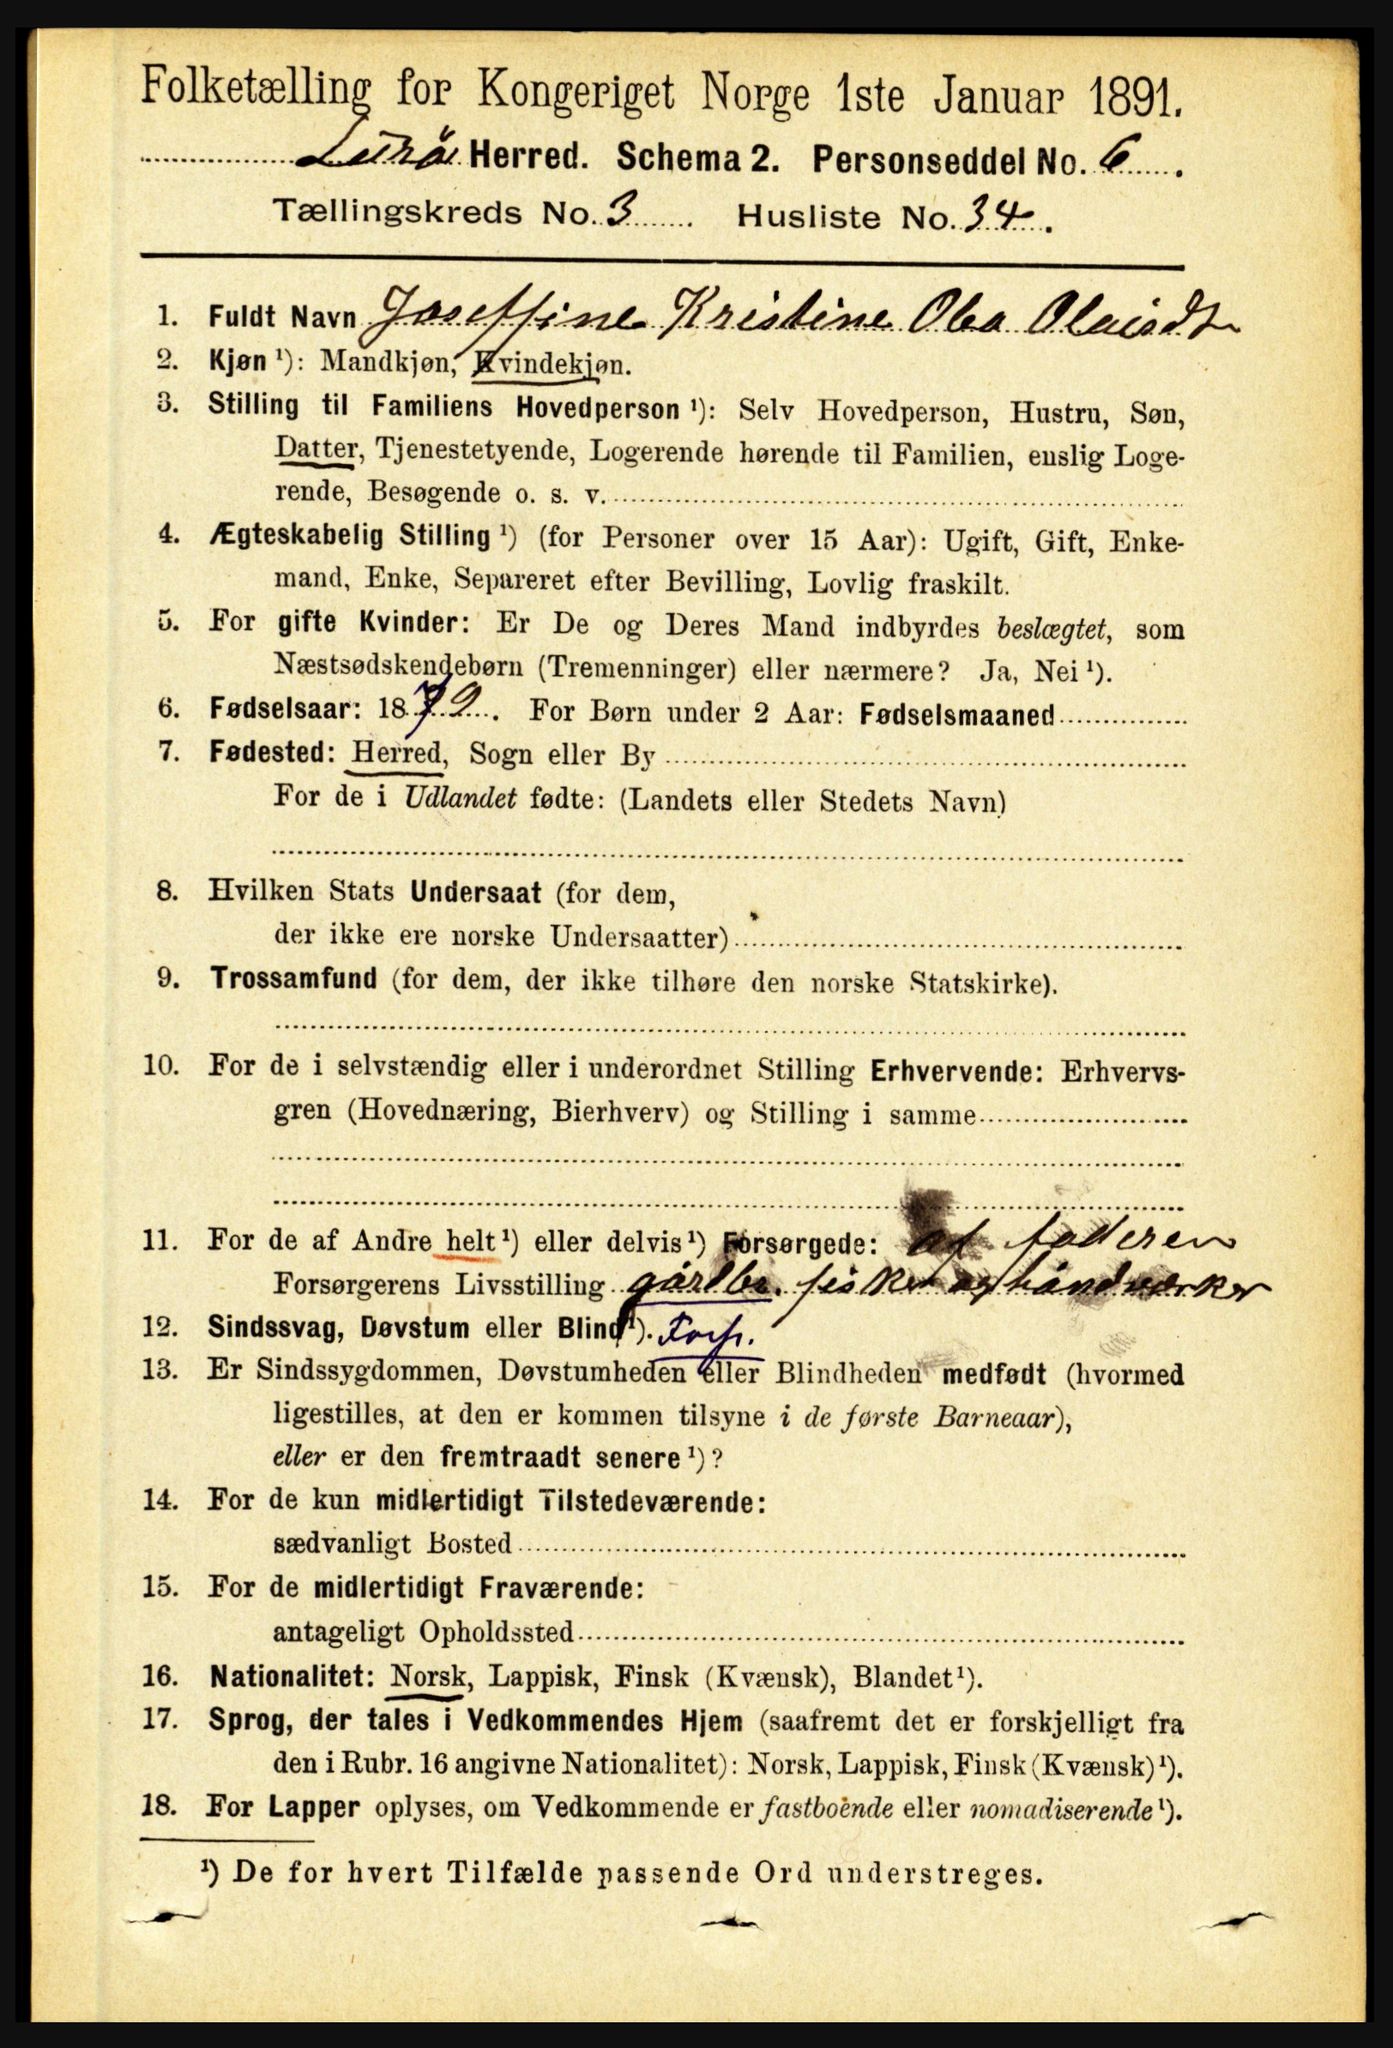 Folketælling for Kongeriget Norge 1ste Januar 1891.
Lurø Herred. Schema 2. Personseddel No. 6.
Tællingskreds No. 3 Husliste No. 34.
1. Fuldt Navn Joseffine Kristine Olea Olaisdt
2. Kjøn ¹): Mandkjøn, Kvindekjøn.
3. Stilling til Familiens Hovedperson ¹): Selv Hovedperson, Hustru, Søn,
Datter, Tjenestetyende, Logerende hørende til Familien, enslig Loge-
rende, Besøgende o. s. v.
4. Ægteskabelig Stilling ¹) (for Personer over 15 Aar): Ugift, Gift, Enke-
mand, Enke, Separeret efter Bevilling, Lovlig fraskilt.
5. For gifte Kvinder: Er De og Deres Mand indbyrdes beslægtet, som
Næstsødskendebørn (Tremenninger) eller nærmere? Ja, Nei ¹).
6. Fødselsaar: 1879. For Børn under 2 Aar: Fødselsmaaned
7. Fødested: Herred, Sogn eller By
For de i Udlandet fødte: (Landets eller Stedets Navn)
8. Hvilken Stats Undersaat (for dem,
der ikke ere norske Undersaatter)
9. Trossamfund (for dem, der ikke tilhøre den norske Statskirke).
10. For de i selvstændig eller i underordnet Stilling Erhvervende: Erhvervs-
gren (Hovednæring, Bierhverv) og Stilling i samme
11. For de af Andre helt ¹) eller delvis ¹) Forsørgede: af faderen
Forsørgerens Livsstilling gårdbr. fisker og håndværker
12. Sindssvag, Døvstum eller Blind ¹). Fors.
13. Er Sindssygdommen, Døvstumheden eller Blindheden medfødt (hvormed
ligestilles, at den er kommen tilsyne i de første Barneaar),
eller er den fremtraadt senere ¹)?
14. For de kun midlertidigt Tilstedeværende:
sædvanligt Bosted
15. For de midlertidigt Fraværende:
antageligt Opholdssted
16. Nationalitet: Norsk, Lappisk, Finsk (Kvænsk), Blandet ¹).
17. Sprog, der tales i Vedkommendes Hjem (saafremt det er forskjelligt fra
den i Rubr. 16 angivne Nationalitet): Norsk, Lappisk, Finsk (Kvænsk) ¹).
18. For Lapper oplyses, om Vedkommende er fastboende eller nomadiserende ¹).
¹) De for hvert Tilfælde passende Ord understreges.